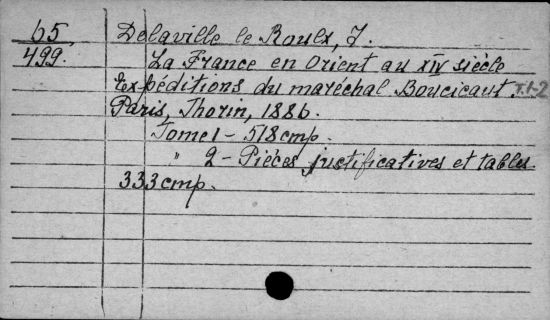 65
499.
Delaville le Roulx, J.
La France en Orient au XIV siècle
Expéditions du maréchal Boucicaut. T.1-2
Paris, Thorin, 1886.
Tome 1 - 518 стр.
" 2 - Pièces justificatives et tables
333 стр.